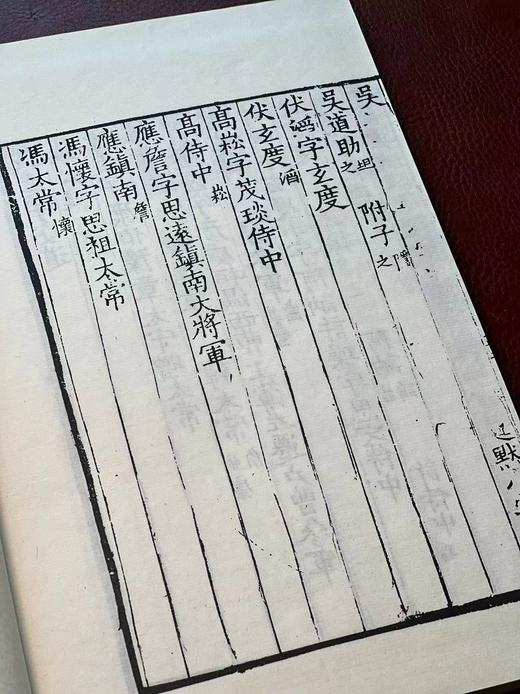 吳
吳道助坦之 附子隱之
伏滔字玄度
伏玄度滔
髙崧字茂琰侍中
髙侍中崧
應詹字思遠鎮南大將軍
應鎮南詹
馮懷字思祖太常
馮太常懷
默